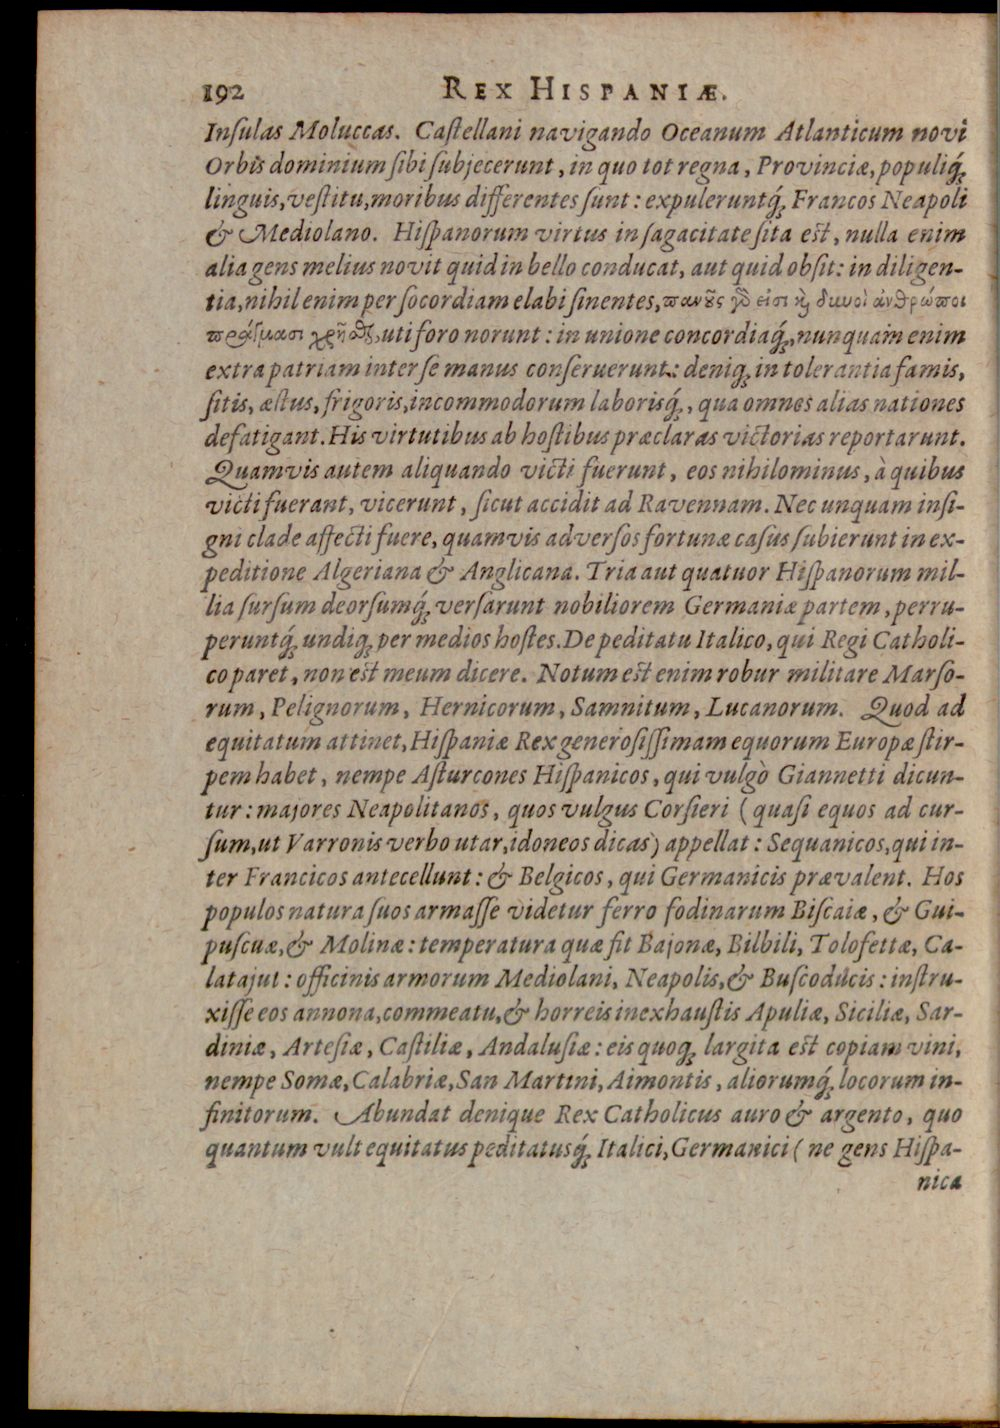 192 REX HISPANIÆ.
Inſulas Moluccas. Caſtellani navigando Oceanum Atlanticum novi
Orbis dominium ſibi ſubjecerunt, in quo tot regna, Provinciæ, populiq́;
linguis, veſtitu, moribus differentes ſunt: expuleruntq́; Francos Neapoli
& Mediolano. Hiſpanorum virtus in ſagacitate ſita eſt, nulla enim
alia gens melius novit quid in bello conducat, aut quid obſit: in diligen-
tia, nihil enim per ſocordiam elabi ſinentes, ἀνθρώποι
uti foro norunt: in unione concordiaq́;, nunquam enim
extra patriam inter ſe manus conſeruerunt: deniq; in tolerantia famis,
ſitis, æſtus, frigoris, incommodorum laborisq́;, qua omnes alias nationes
defatigant. His virtutibus ab hoſtibus præclaras victorias reportarunt.
Quamvis autem aliquando victi fuerunt, eos nihilominus, à quibus
victi fuerant, vicerunt, ſicut accidit ad Ravennam. Nec unquam inſi-
gni clade affecti fuere, quamvis adverſos fortunæ caſus ſubierunt in ex-
peditione Algeriana & Anglicana. Tria aut quatuor Hiſpanorum mil-
lia ſurſum deorſumq́; verſarunt nobiliorem Germaniæ partem, perru-
peruntq́; undiq; per medios hoſtes. De peditatu Italico, qui Regi Catholi-
co paret, non eſt meum dicere. Notum eſt enim robur militare Marſo-
rum, Pelignorum, Hernicorum, Samnitum, Lucanorum. Quod ad
equitatum attinet, Hiſpaniæ Rex generoſiſſimam equorum Europæ ſtir-
pem habet, nempe Aſturcones Hiſpanicos, qui vulgò Giannetti dicun-
tur: majores Neapolitanos, quos vulgus Corſieri (quaſi equos ad cur-
ſum, ut Varronis verbo utar, idoneos dicas) appellat: Sequanicos, qui in-
ter Francicos antecellunt: & Belgicos, qui Germanicis prævalent. Hos
populos natura ſuos armaſſe videtur ferro fodinarum Biſcaiæ, & Gui-
puſcuæ, & Molinæ: temperatura quæ fit Bajonæ, Bilbili, Toloſettæ, Ca-
latajut: officinis armorum Mediolani, Neapolis, & Buſcoducis: inſtru-
xiſſe eos annona, commeatu, & horreis inexhauſtis Apuliæ, Siciliæ, Sar-
diniæ, Arteſiæ, Caſtiliæ, Andaluſiæ: eis quoq; largita eſt copiam vini,
nempe Somæ, Calabriæ, San Martini, Aimontis, aliorumq́; locorum in-
finitorum. Abundat denique Rex Catholicus auro & argento, quo
quantum vult equitatus peditatusq́; Italici, Germanici (ne gens Hiſpa-
nica